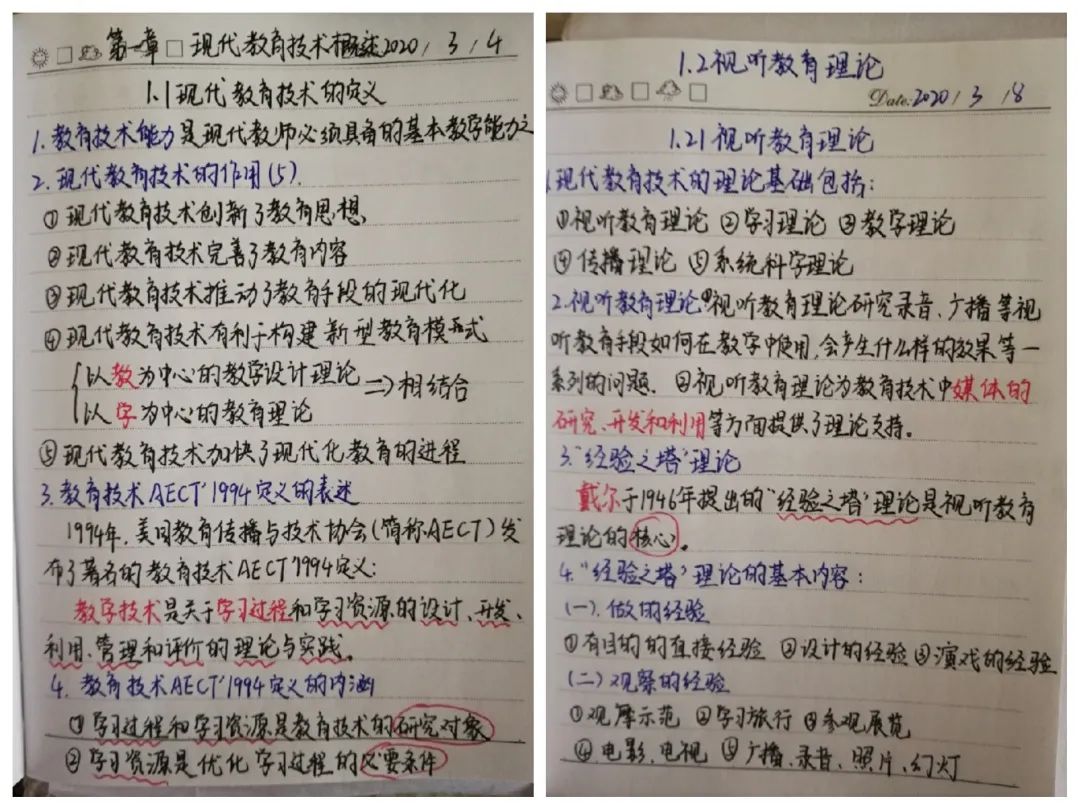 第一章 现代教育技术概述2020/3/4
1.1现代教育技术的定义
1.教育技术能力是现代教师必须具备的基本教学能力之
2.现代教育技术的作用(5).
①现代教育技术创新了教育思想.
②现代教育技术完善了教育内容
③现代教育技术推动了教育手段的现代化
④现代教育技术有利于构建新型教育模式
以教为中心的教学设计理论
⇒相结合
以学为中心的教育理论
⑤现代教育技术加快了现代化教育的进程
3.教育技术AECT'1994定义的表述
1994年,美国教育传播与技术协会(简称AECT)发
布了著名的教育技术AECT'1994定义:
教学技术是关于学习过程和学习资源的设计、开发、
利用、管理和评价的理论与实践。
4.教育技术AECT'1994定义的内涵
①学习过程和学习资源是教育技术的研究对象
②学习资源是优化学习过程的必要条件
1.2视听教育理论
Date:2020/3/8
1.21视听教育理论
1.现代教育技术的理论基础包括:
①视听教育理论 ②学习理论 ③教学理论
④传播理论 ⑤系统科学理论
2.视听教育理论:①视听教育理论研究录音、广播等视
听教育手段如何在教学中使用,会产生什么样的效果等一
系列的问题. ②视听教育理论为教育技术中媒体的
研究、开发和利用等方面提供了理论支持。
3."经验之塔"理论
戴尔于1946年提出的"经验之塔"理论是视听教育
理论的核心。
4."经验之塔"理论的基本内容:
(一).做的经验
①有目的的直接经验 ②设计的经验 ③演戏的经验
(二)观察的经验
①观摩示范 ②学习旅行 ③参观展览
④电影、电视 ⑤广播、录音、照片、幻灯